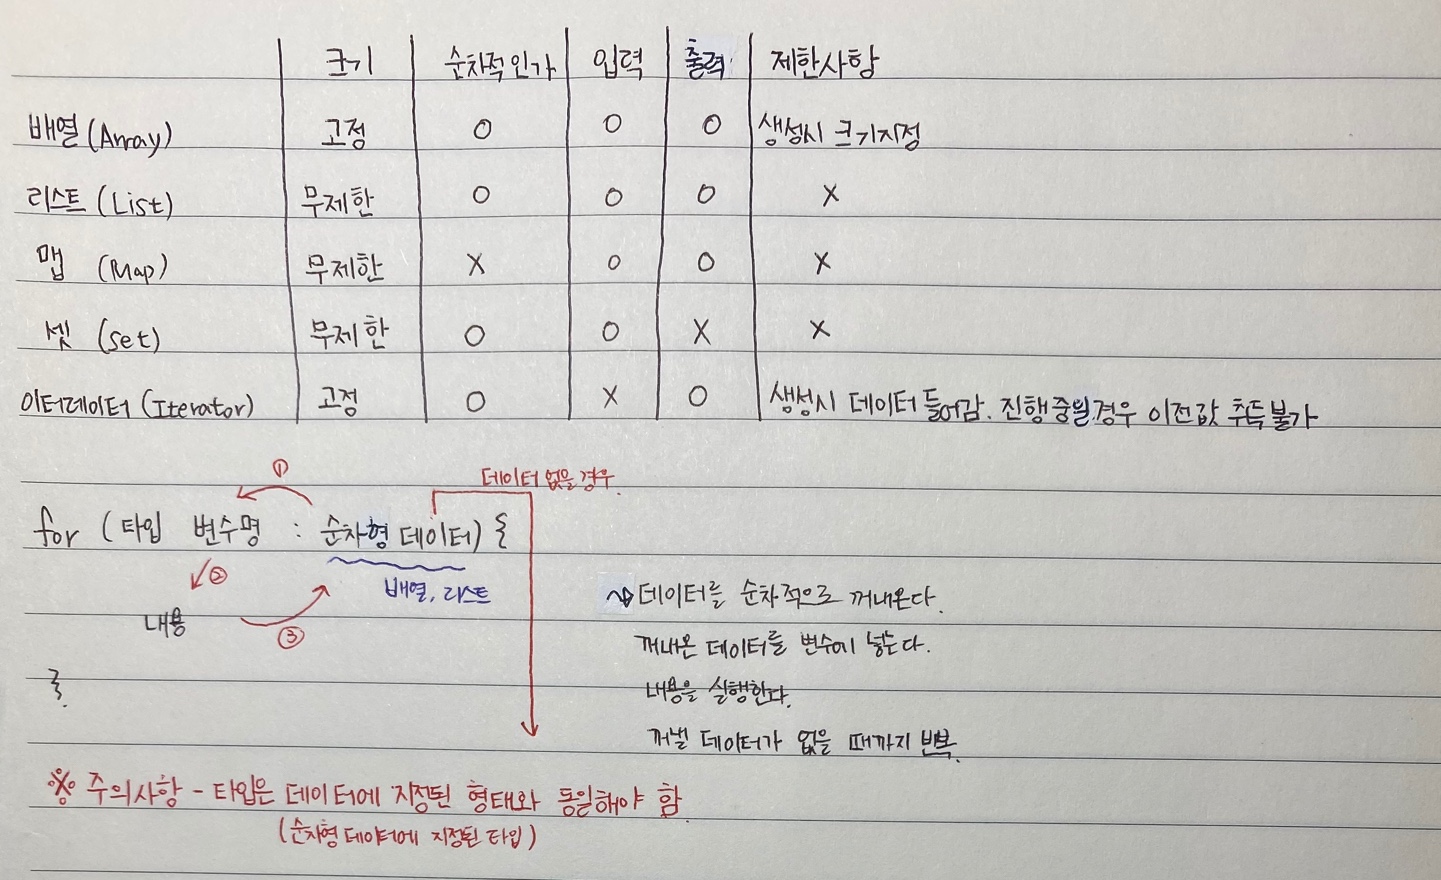 크기 순차적인가 입력 출력 제한사항
배열 (Array) 고정 O O O 생성시 크기지정
리스트 (List) 무제한 O O O X
맵 (Map) 무제한 X O O X
셋 (Set) 무제한 O O X X
이터레이터 (Iterator) 고정 O X O 생성시 데이터 들어감. 진행중일경우 이전값 취득불가
①
데이터 없을 경우.
for ( 타입 변수명 : 순차형 데이터) {
②
배열, 리스트
내용
③
}.
→ 데이터를 순차적으로 꺼내온다.
꺼내온 데이터를 변수에 넣는다.
내용을 실행한다.
꺼낼 데이터가 없을 때까지 반복.
※ 주의사항 - 타입은 데이터에 지정된 형태와 동일해야 함.
(순차형 데이터에 지정된 타입)